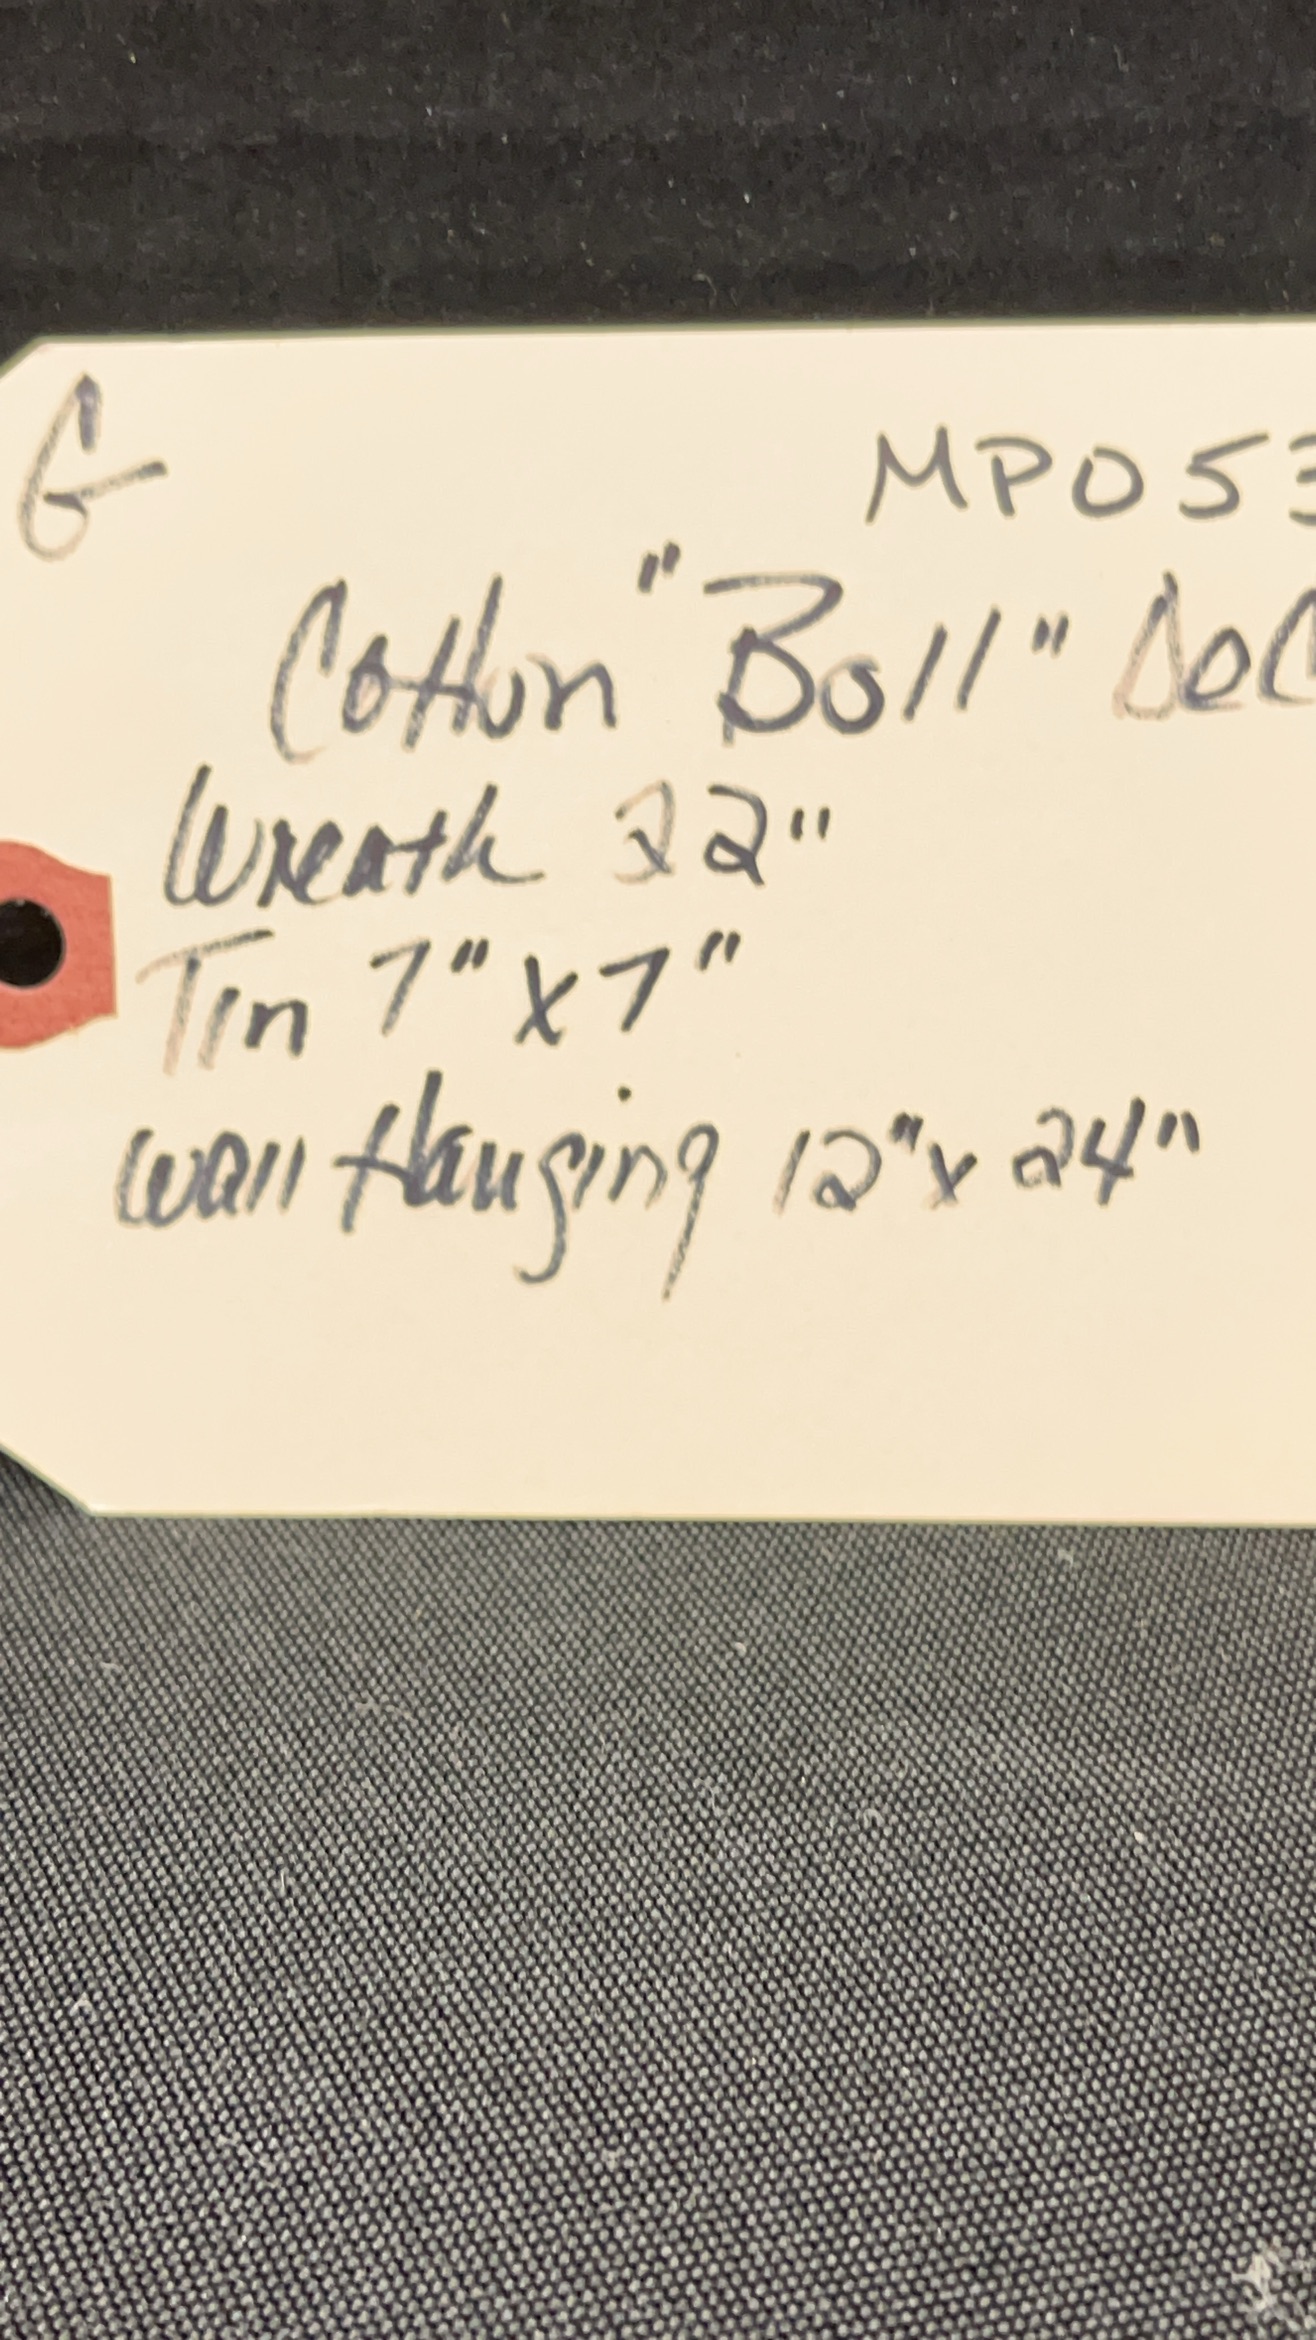 G
MP053
Cotton "Boll" Dec
Wreath 22"
Tin 7" x 7"
Wall Hanging 12" x 24"